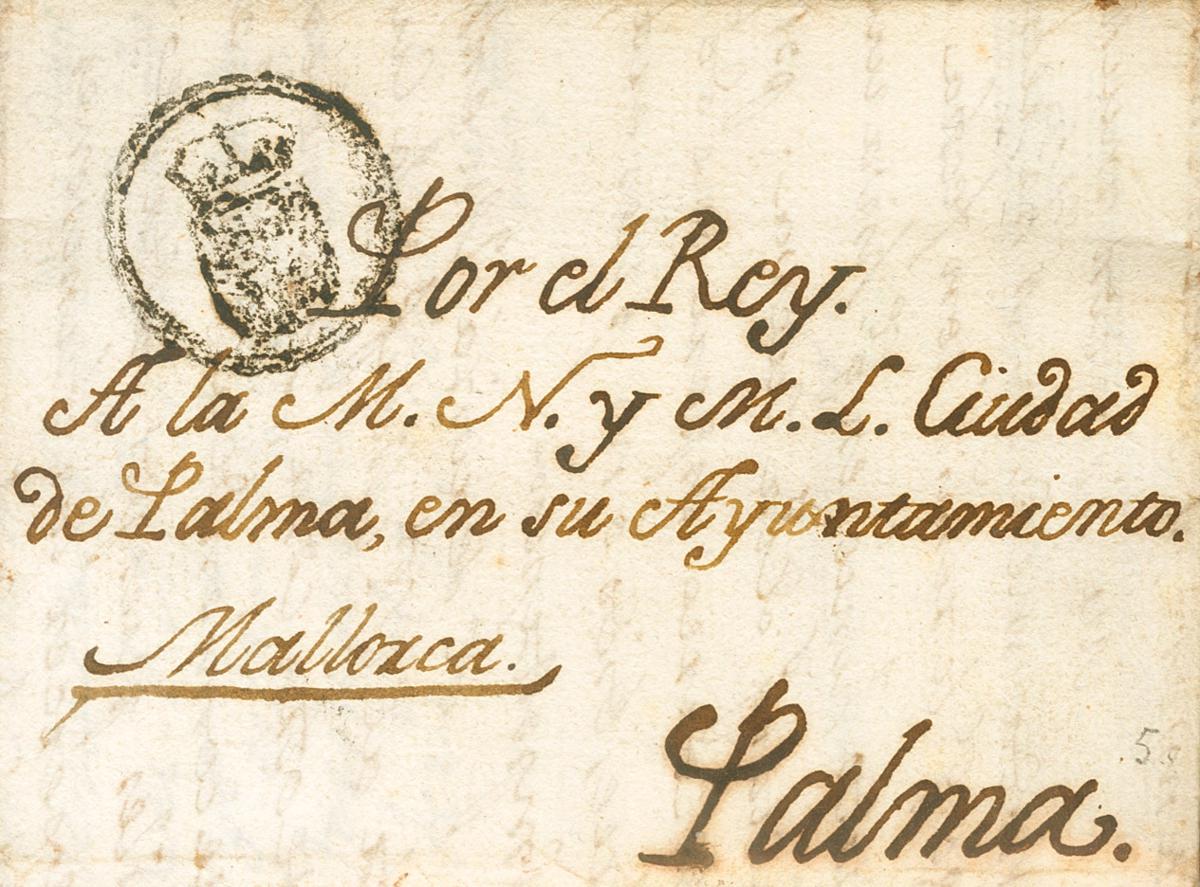 Por el Rey.
A la M. N. y M. L. Ciudad
de Palma, en su Ayuntamiento.
Mallorca.
Palma.
5